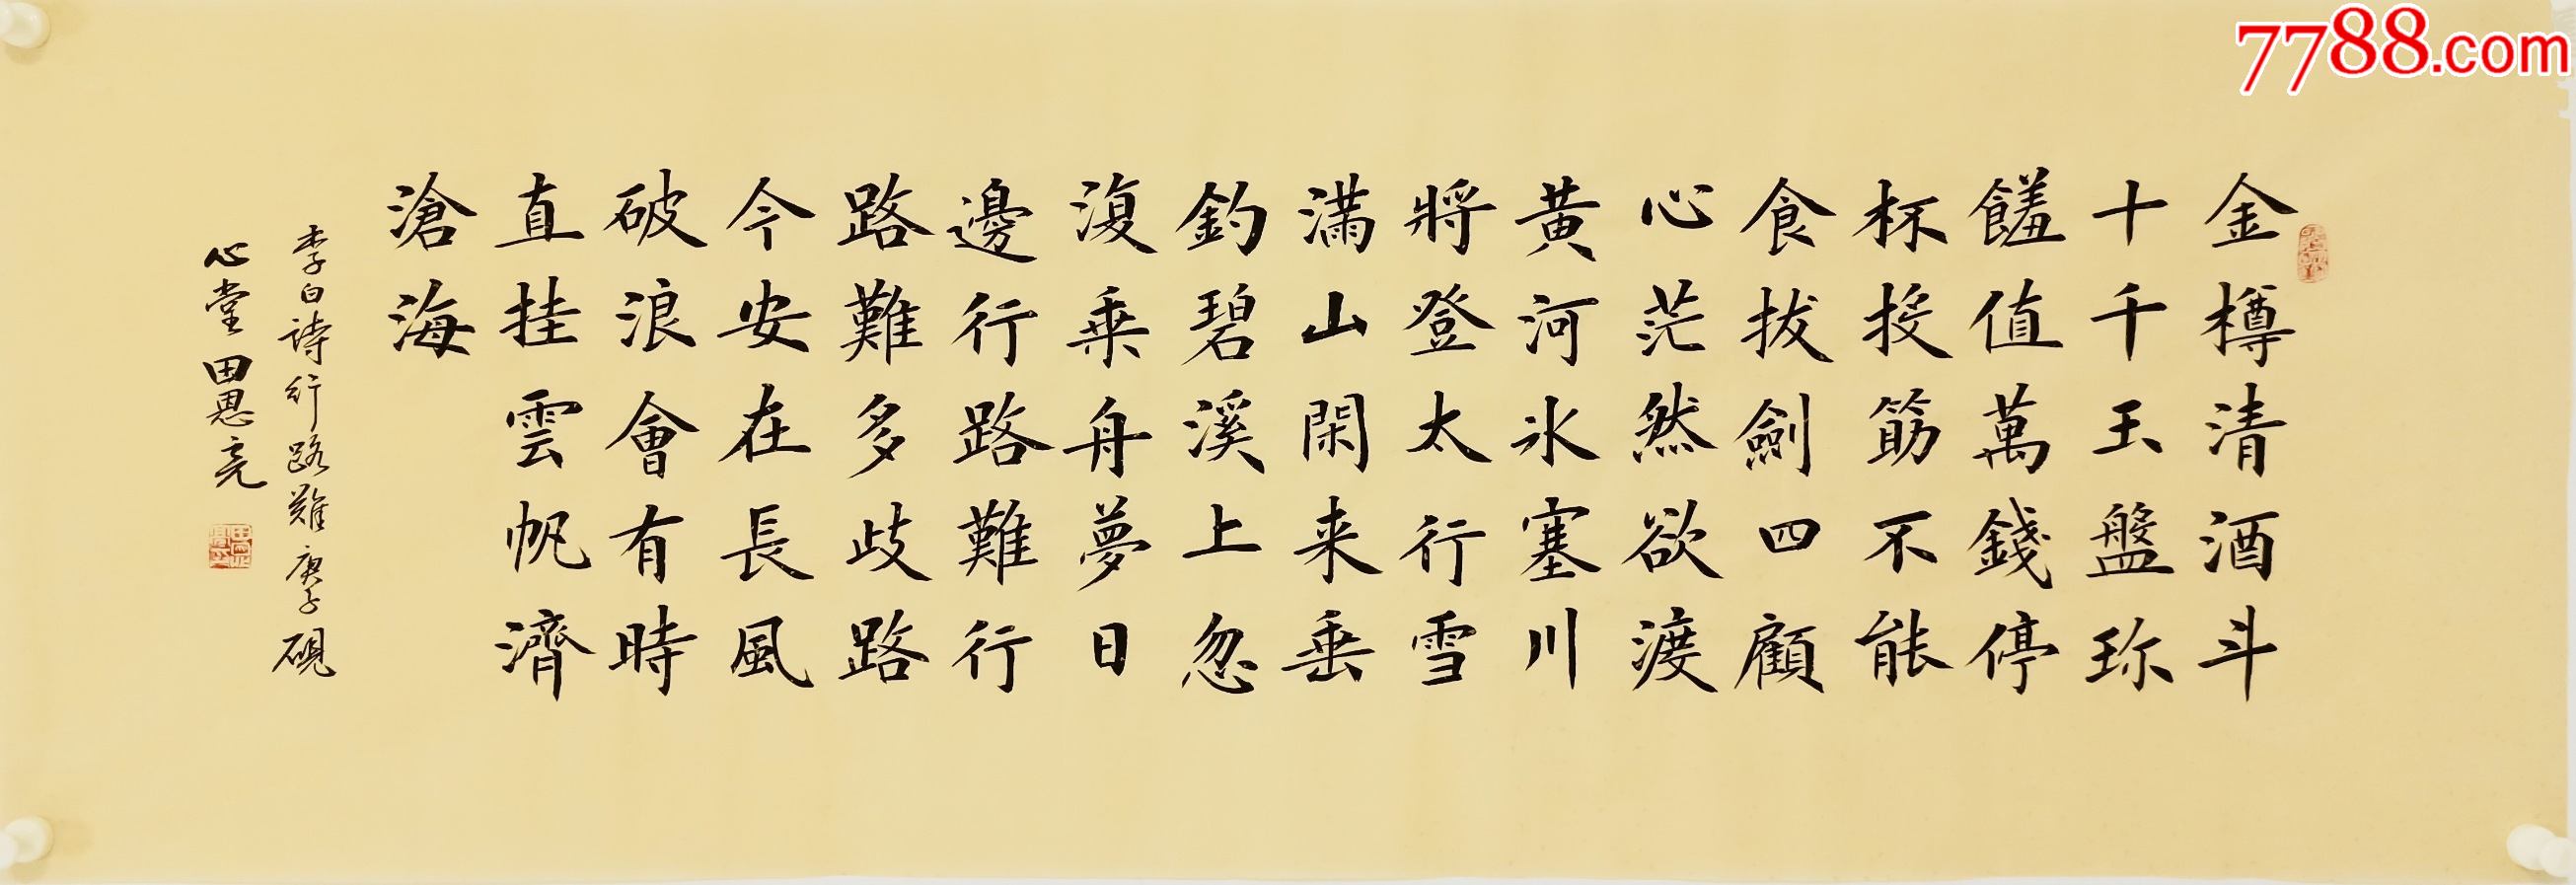 金樽清酒斗
十千玉盤珎
饈值萬錢停
杯投筯不能
食拔劍四顧
心茫然欲渡
黄河冰塞川
將登太行雪
滿山閑来垂
釣碧溪上忽
復乘舟夢日
邊行路難行
路難多歧路
今安在長風
破浪會有時
直挂雲帆濟
滄海
李白詩行路難庚子硯
心堂田恩亮
7788.com